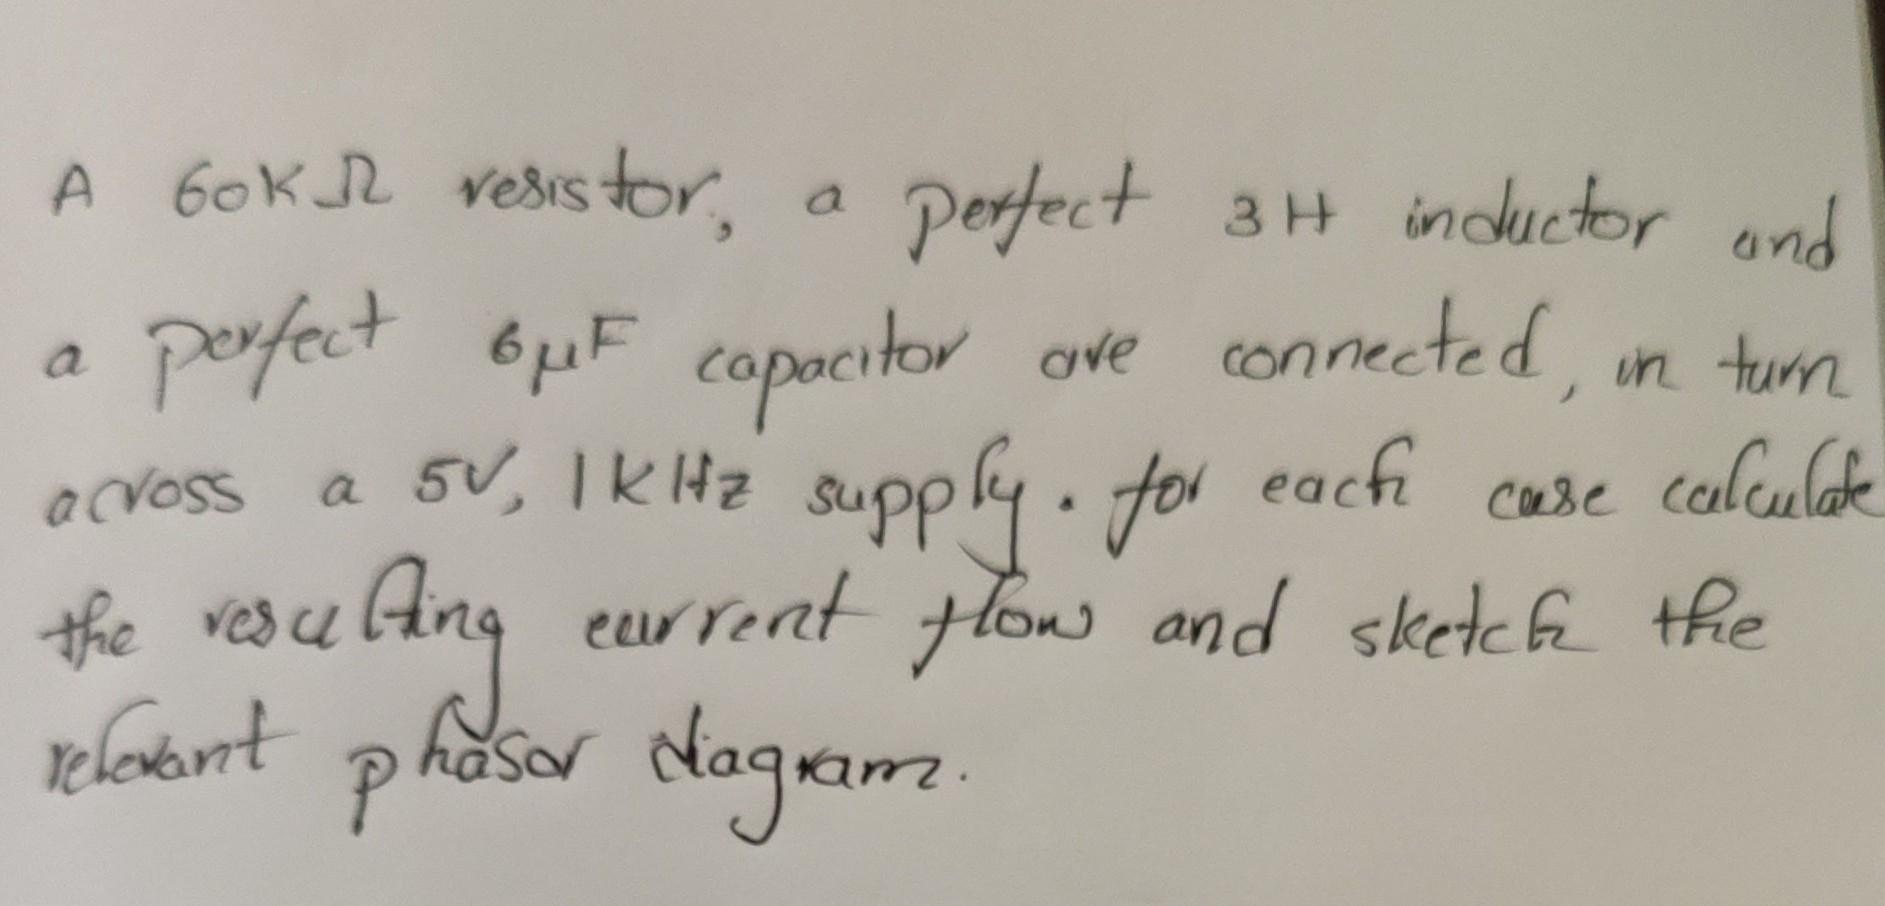 A 60KΩ resistor, a perfect 3H inductor and
a perfect 6μF capacitor are connected, in turn
across a 5V, 1KHz supply. for each case calculate
the resulting current flow and sketch the
relevant phasor diagram.